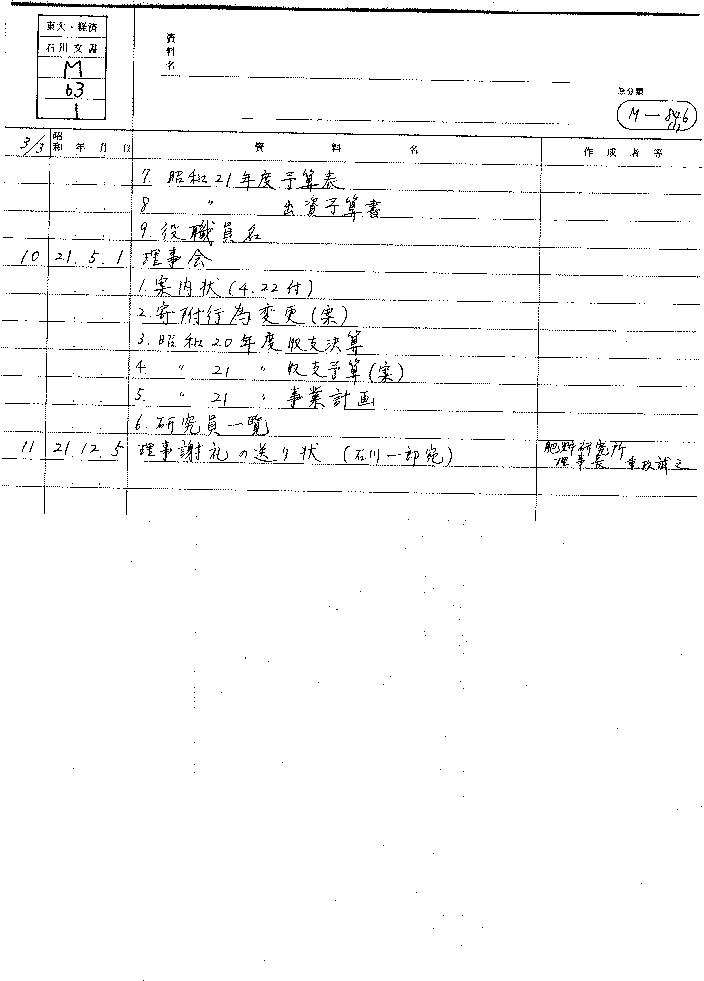 東大・経済
石川文書
M
63
1
資料名
総分類
M-846
3/3 昭和 年 月 日 資 料 名 作成者等
7. 昭和21年度予算表
8 〃 出資予算書
9. 役職員名
10 21.5.1 理事会
1. 案内状(4.22付)
2. 寄附行為変更(案)
3. 昭和20年度収支決算
4. 〃 21 〃 収支予算(案)
5. 〃 21 〃 事業計画
6. 研究員一覧
11 21.12.5 理事謝礼の送り状 (石川一郎宛) 肥野研究所
理事長 重政誠之